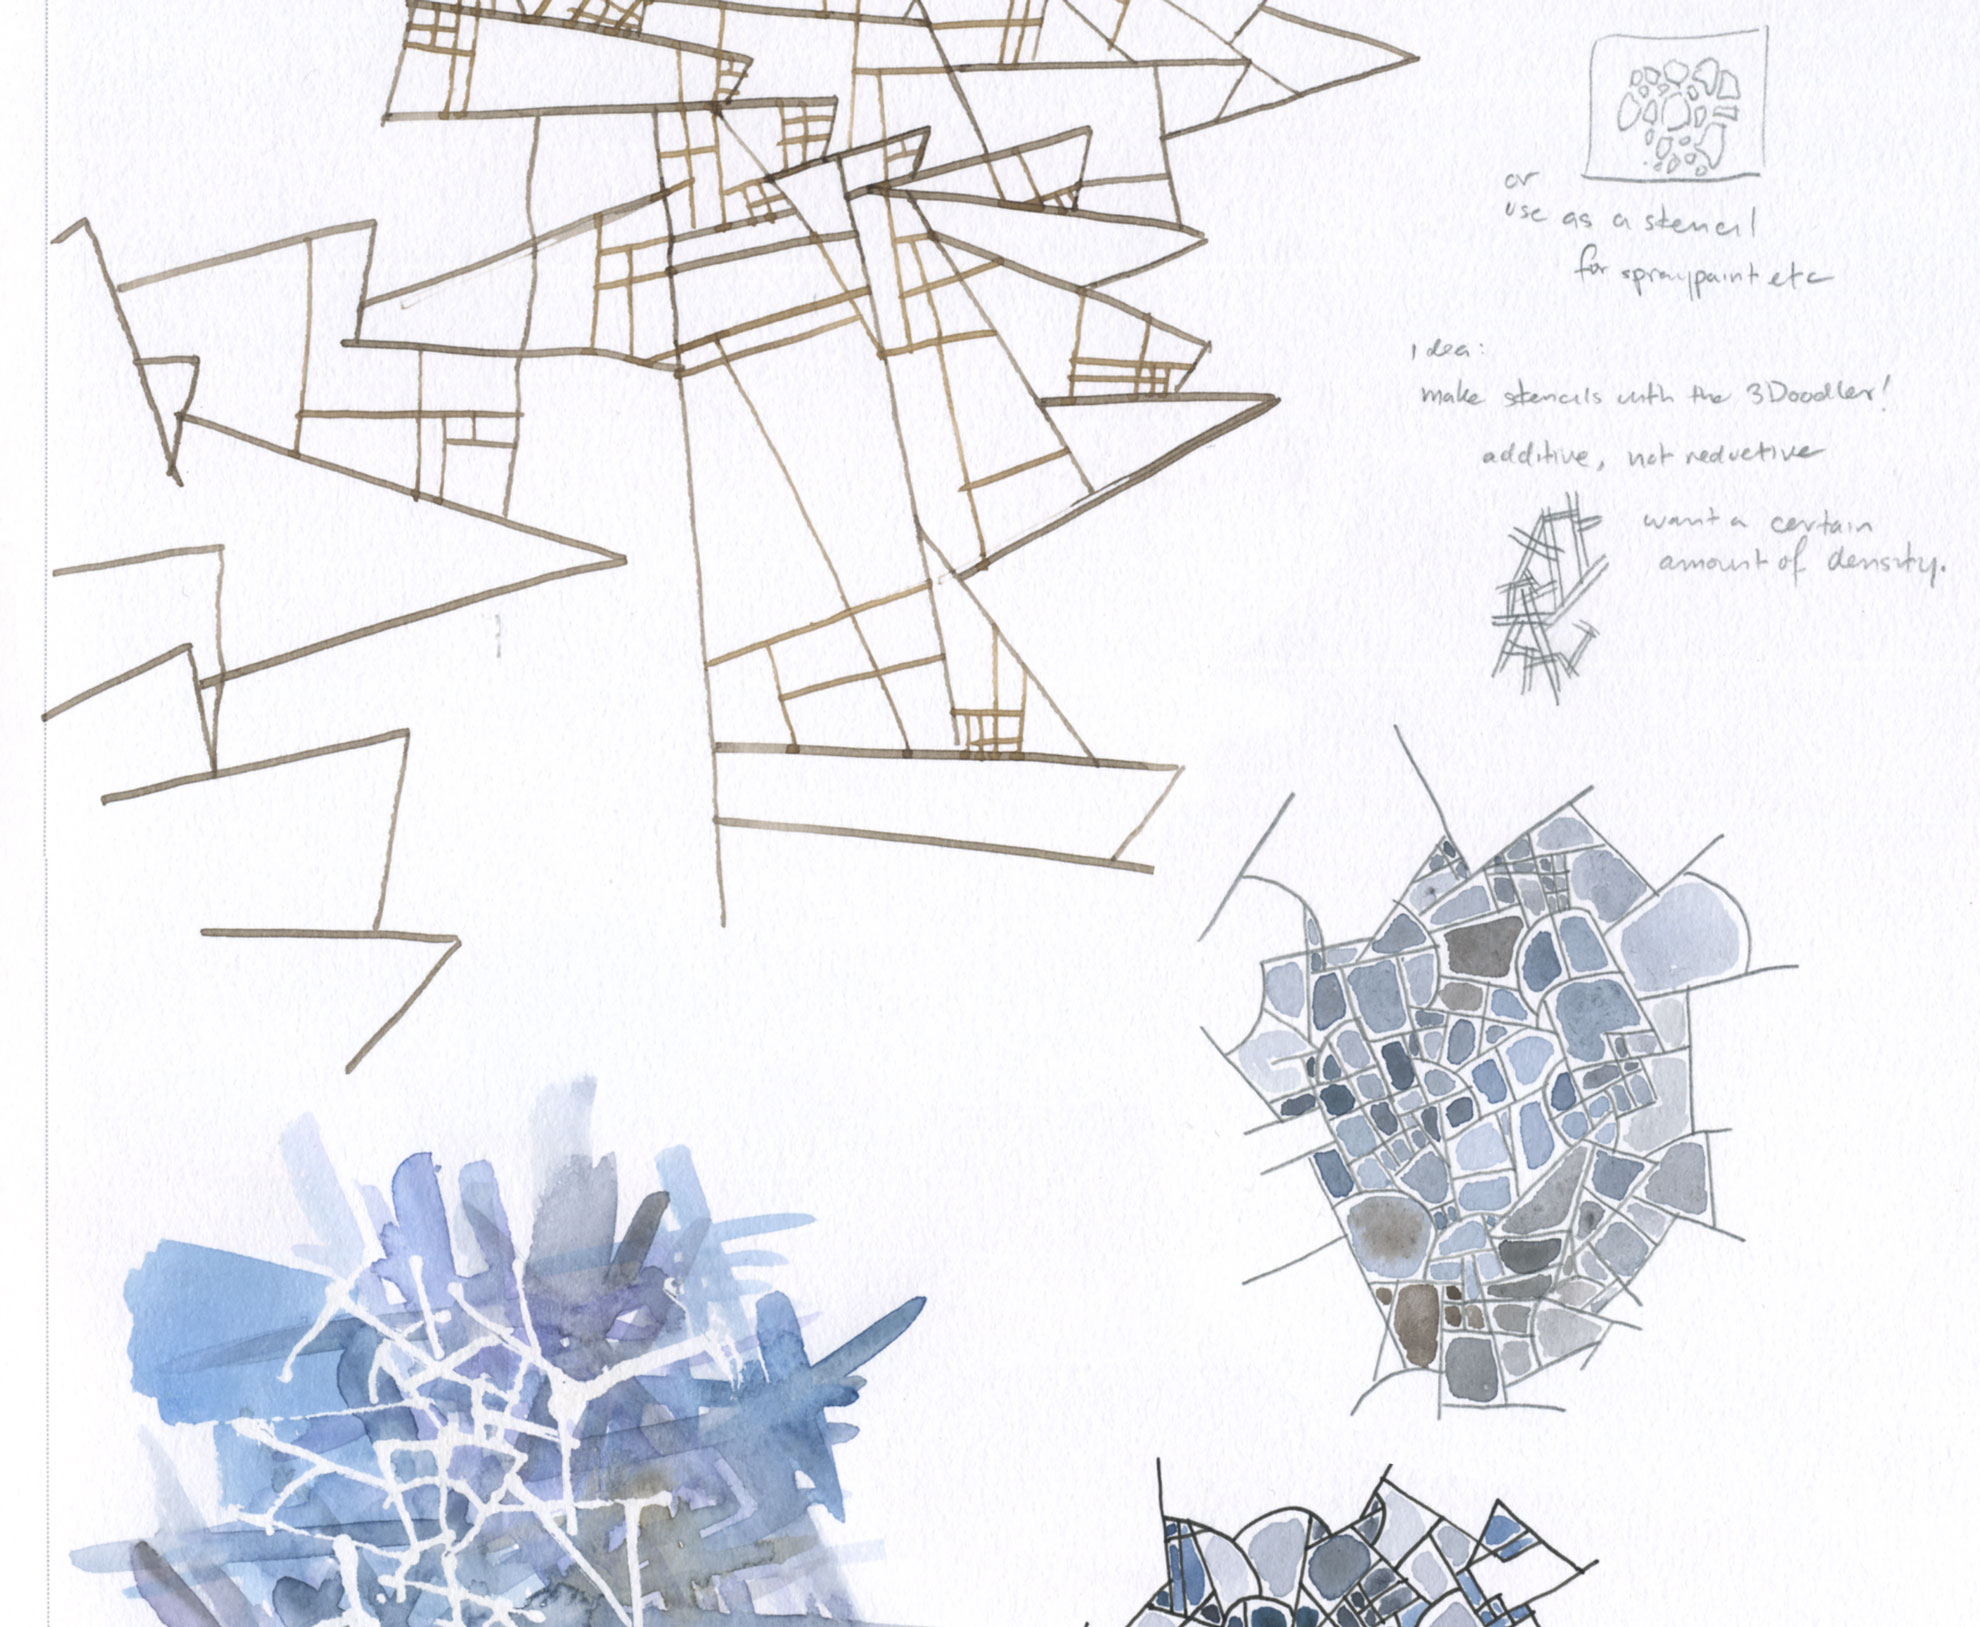 or
use as a stencil
for spraypaint etc
Idea:
make stencils with the 3Doodler!
additive, not reductive
want a certain
amount of density.